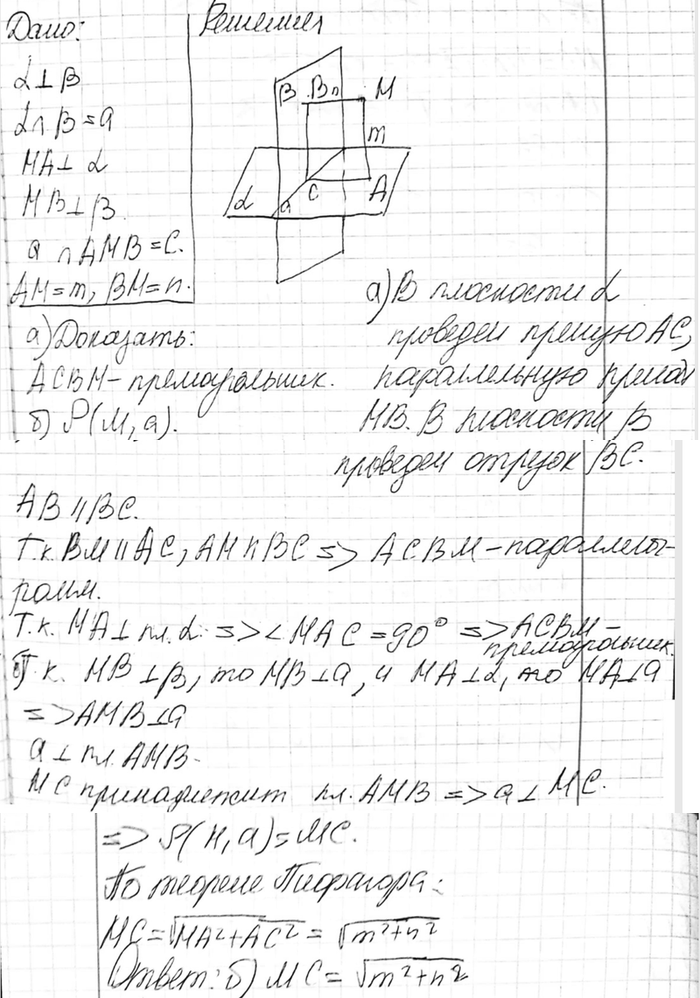 Дано:
Решения
α⊥β
α∩β=a
MA⊥α
MB⊥β
a∩AMB=C.
AM=m, BM=n.
β B n M
m
α a C A
а) Доказать:
ACBM - прямоугольник.
б) ρ(M,a).
а) В плоскости α
проведем прямую AC,
параллельную прямой
MB. В плоскости β
проведем отрезок BC.
AB∥BC.
Т.к. BM∥AC, AM∥BC => ACBM - параллело-
грамм.
Т.к. MA⊥пл.α => ∠MAC=90° => ACBM -
прямоугольник.
б) Т.к. MB⊥β, то MB⊥a, и MA⊥α, то MA⊥a
=> AMB⊥a
a⊥пл. AMB.
MC принадлежит пл. AMB => a⊥MC.
=> ρ(M,a)=MC.
По теореме Пифагора:
MC=√MA²+AC² = √m²+n²
Ответ: б) MC = √m²+n²